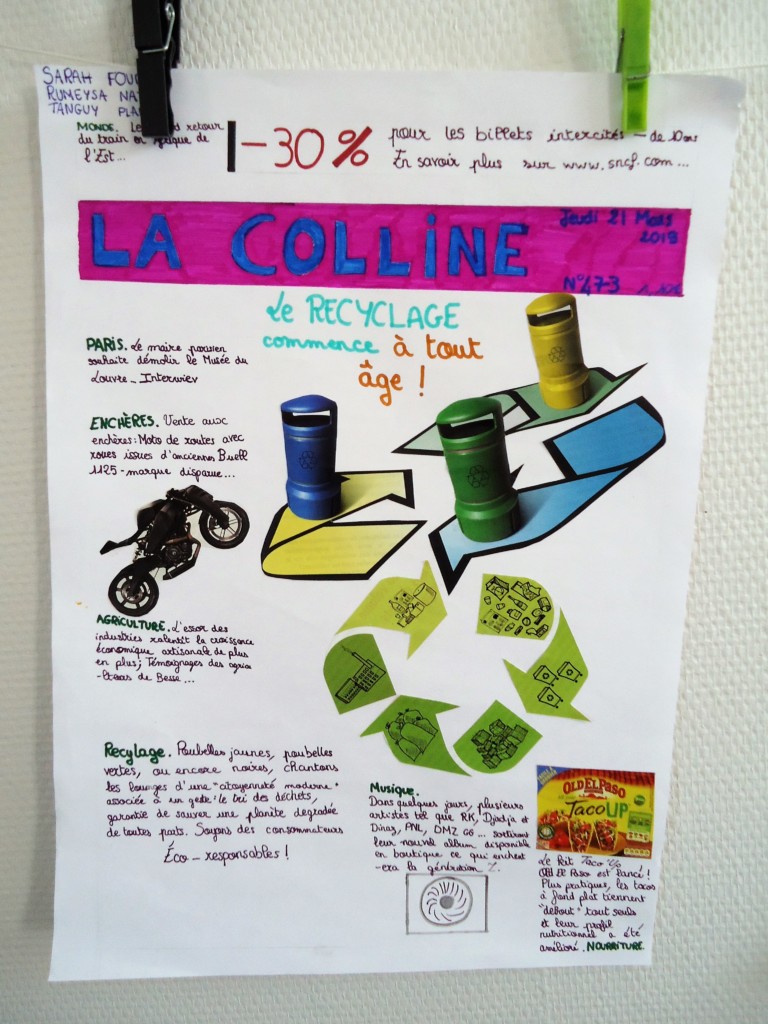 SARAH
RUMEYSA
TANGUY
MONDE. retour
du train en de
l'Est...
-30% pour les billets intercités - de
En savoir plus sur www.sncf.com...
LA COLLINE
Jeudi 21 Mars
2019
N°473
Le RECYCLAGE
commence à tout
âge !
PARIS. Le maire parisien
souhaite démolir le Musée du
Louvre - Interview
ENCHÈRES. Vente aux
enchères: Moto de routes avec
roues issues d'anciennes Buell
1125 - marque disparue...
AGRICULTURE. L'essor des
industries ralentit la croissance
économique artisanale de plus
en plus; Témoignages des agricu
-lteurs de Besse...
Recylage. Poubelles jaunes, poubelles
vertes, ou encore noires, chantons
les louanges d'une "citoyenneté moderne"
associée à un geste: le tri des déchets,
garantie de sauver une planète degradée
de toutes parts. Soyons des consommateurs
Éco - responsables !
Musique.
Dans quelques jours, plusieurs
artistes tel que RK, Djadja et
Dinaz, PNL, DMZ G6 ... sortiront
leur nouvel album disponible
en boutique ce qui enchent
-era la génération Z.
OLD EL PASO
Taco UP
Le Kit Taco Up
Old El Paso est lancé !
Plus pratiques, les tacos
à fond plat tiennent
"debout" tout seuls
et leur profil
nutritionnel a été
amélioré. NOURRITURE.